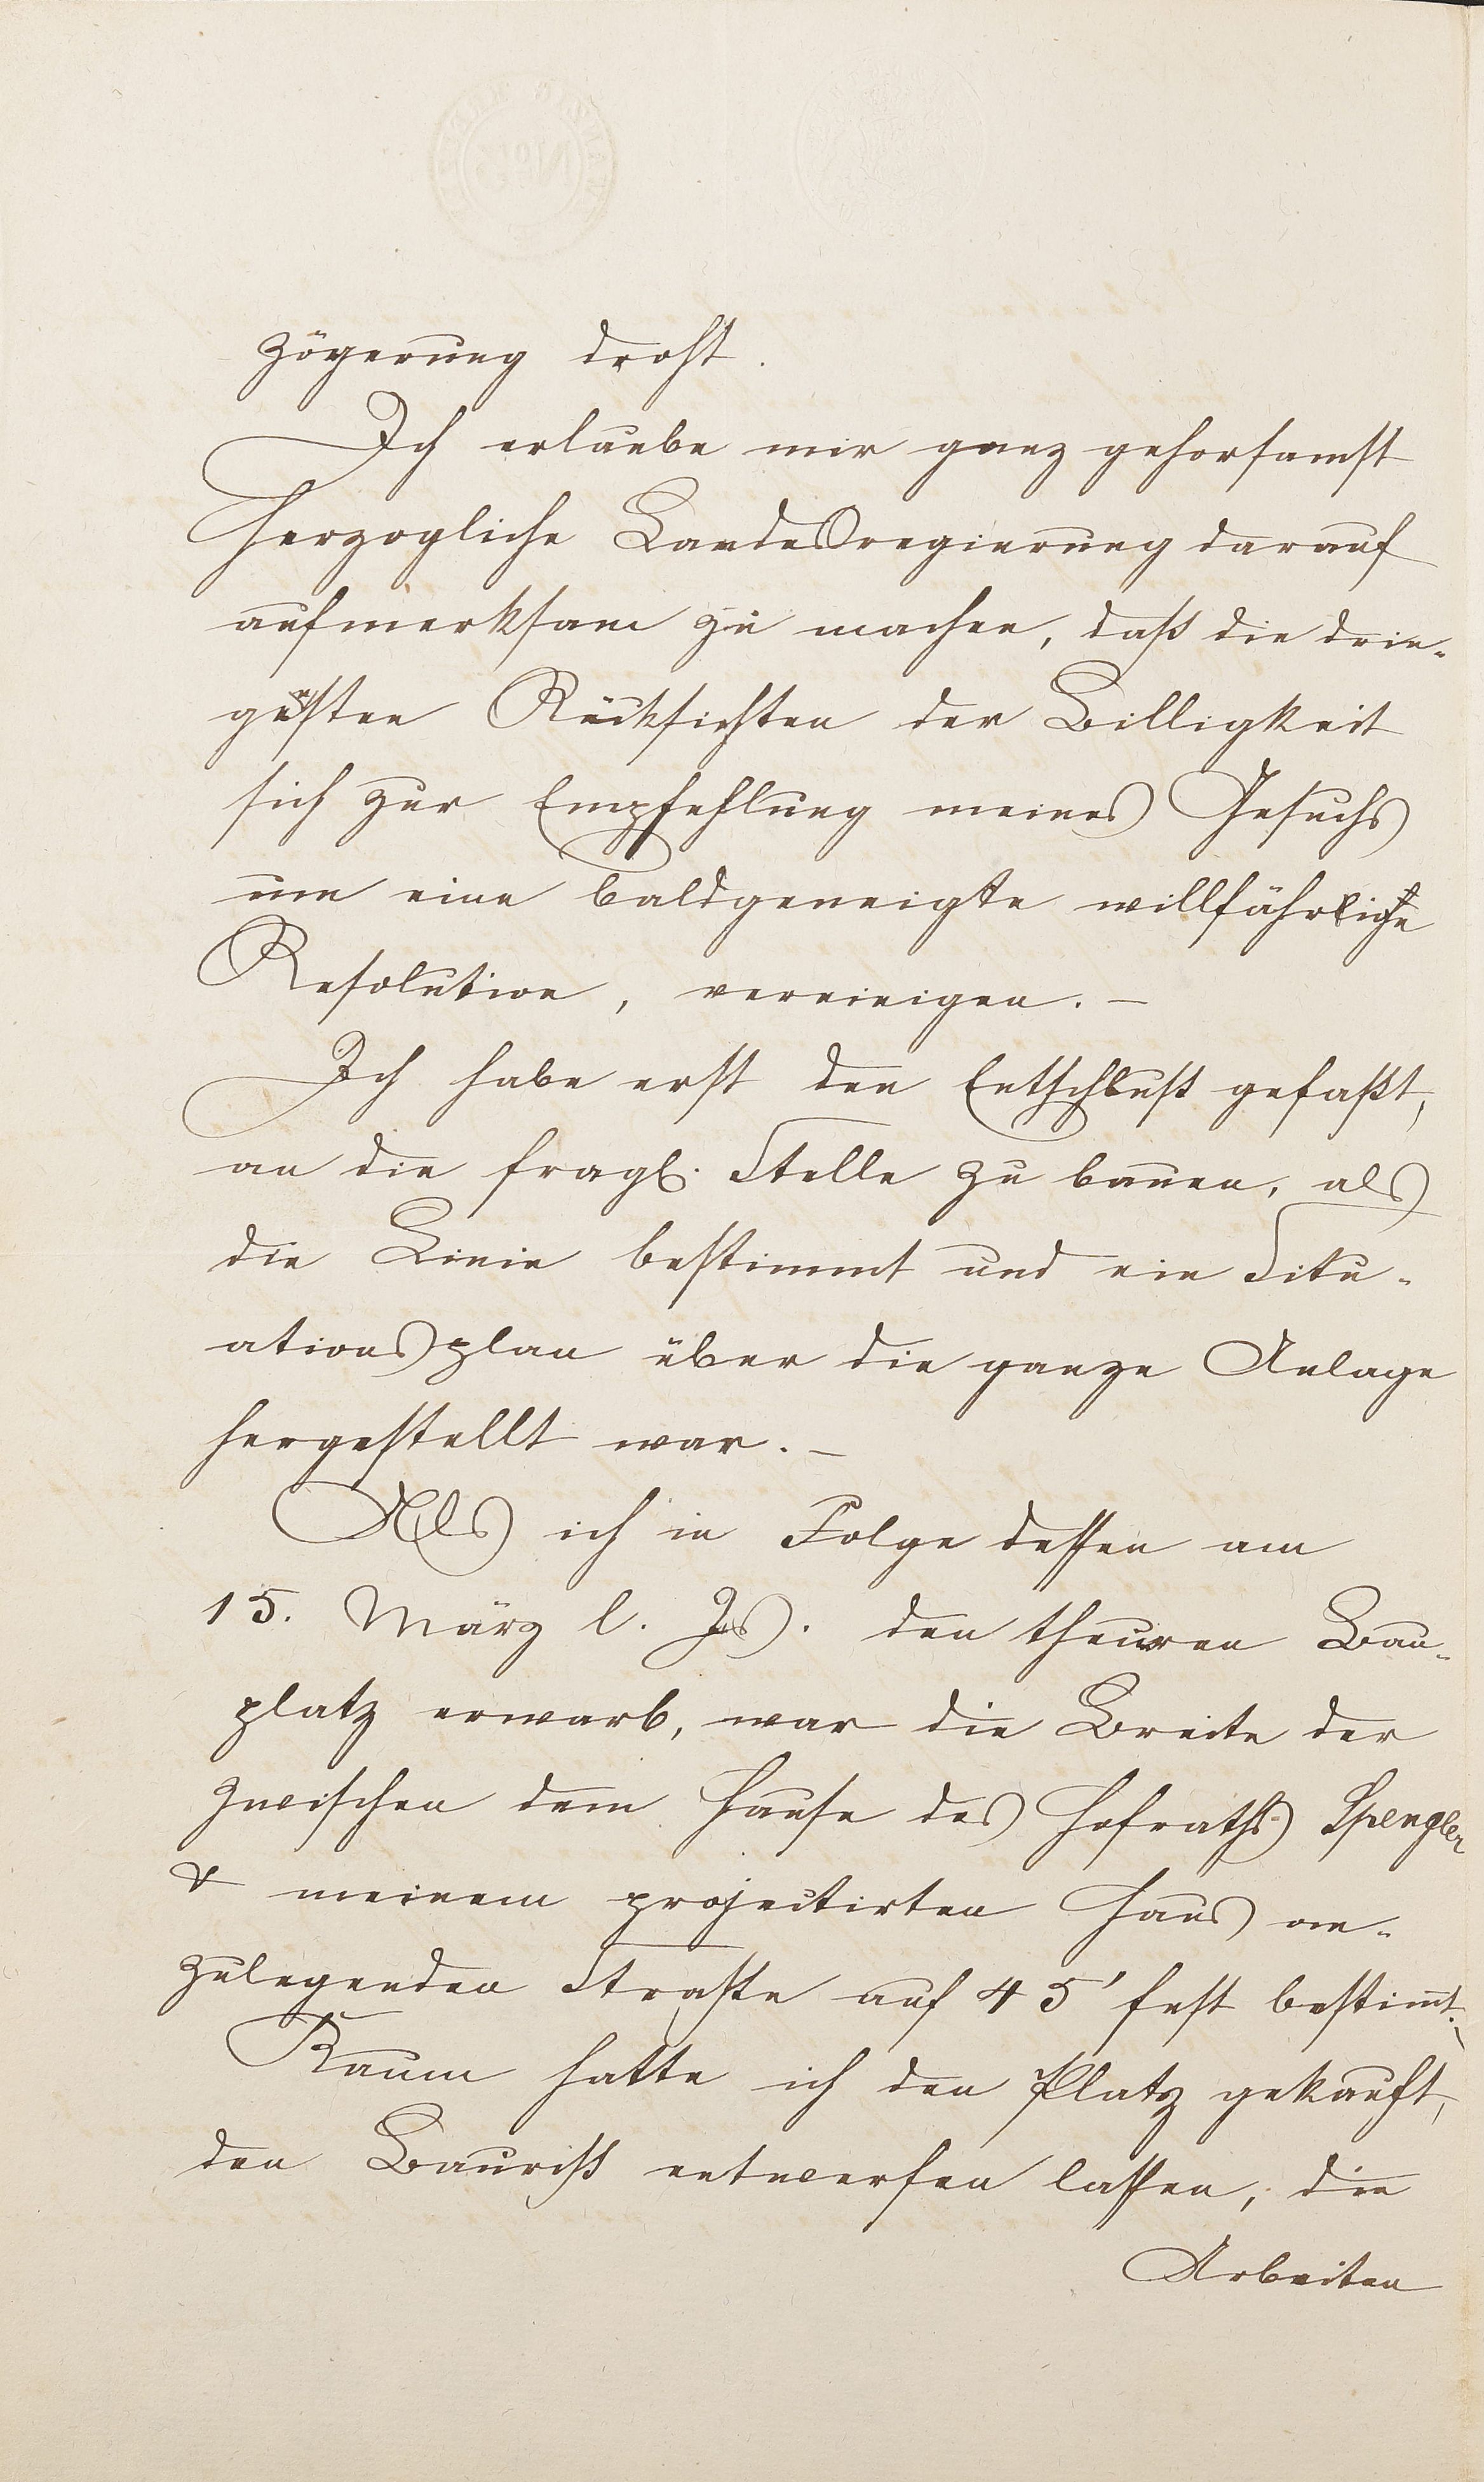 zögerung droht.
Ich erlaube mir ganz gehorsamst
Herzogliche Landesregierung darauf
aufmerksam zu machen, daß die drin-
gensten Rücksichten der Billigkeit
sich zur Empfehlung meines Gesuchs
um eine baldgeneigte willfährigste
Resolution, vereinigen. –
Ich habe erst den Entschluß gefaßt,
an die fragl. Stelle zu bauen, als
die Linie bestimmt und ein Situ-
ationsplan über die ganze Anlage
hergestellt war. –
Als ich in Folge dessen am
15. März l. Js. den theuren Bau-
platz erwarb, war die Breite der
zwischen dem Hause des Hofraths Spengler
& meinem projectirten Haus an-
zulegenden Straße auf 45' fest bestimt.
Kaum hatte ich den Platz gekauft,
den Bauriß entwerfen lassen, die
Arbeiten